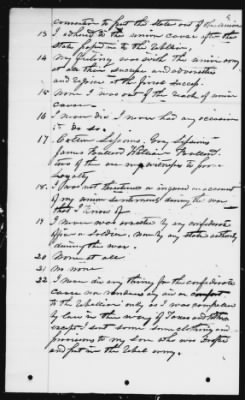 consenter to put the State out of the union
13 I adhered to the union cause after the
State passed in to the Rebellion,
14 My feeling was with the union army
at all their success and adversities
and rejoice at the final success
15 None I was out of the reach of union
cause
16 I never did I never had any occasion
it do so.
17 Gov
James
two of the are my witness to prove
loyalty
18. I was not threatened or injured on account
of my union sentiments during the war
that I know of
19 I never was arrested by any confederate
officer or soldier, nor by any state authority
during the war.
20 None at all
21 No none
22 I never did any thing for the confederate
cause nor rendered any aid or comfort
to the Rebellion only as I was compelled
by law in the way of Taxes and tithes
except I sent some some clothing and
provisions to my son who was Drafted
and put in the Rebel army.